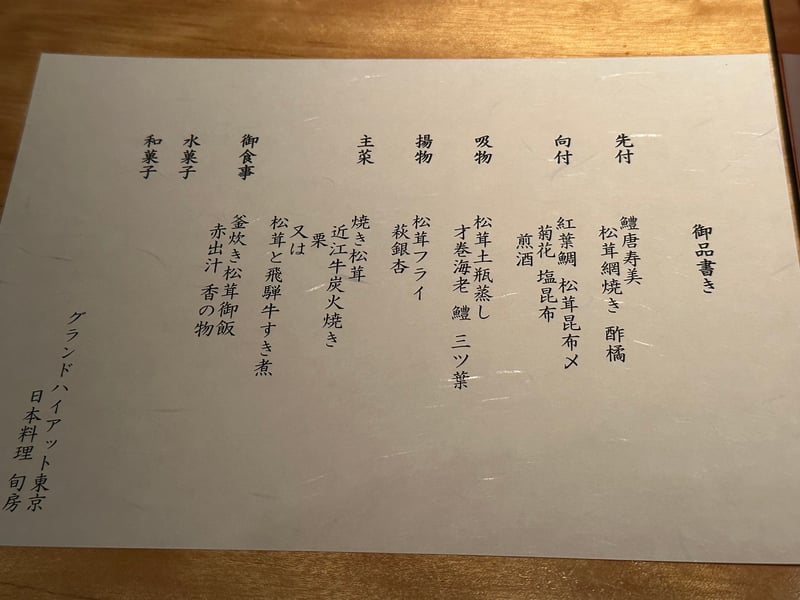 御品書き
先付
鱧唐寿美
松茸網焼き 酢橘
向付
紅葉鯛 松茸昆布〆
菊花 塩昆布
煎酒
吸物
松茸土瓶蒸し
才巻海老 鱧 三ツ葉
揚物
松茸フライ
萩銀杏
主菜
焼き松茸
近江牛炭火焼き
栗
又は
松茸と飛騨牛すき煮
御食事
釜炊き松茸御飯
赤出汁 香の物
水菓子
和菓子
グランドハイアット東京
日本料理 旬房